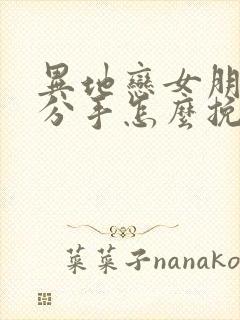 異地戀女朋
分手怎麼挽
菜菜子nanako